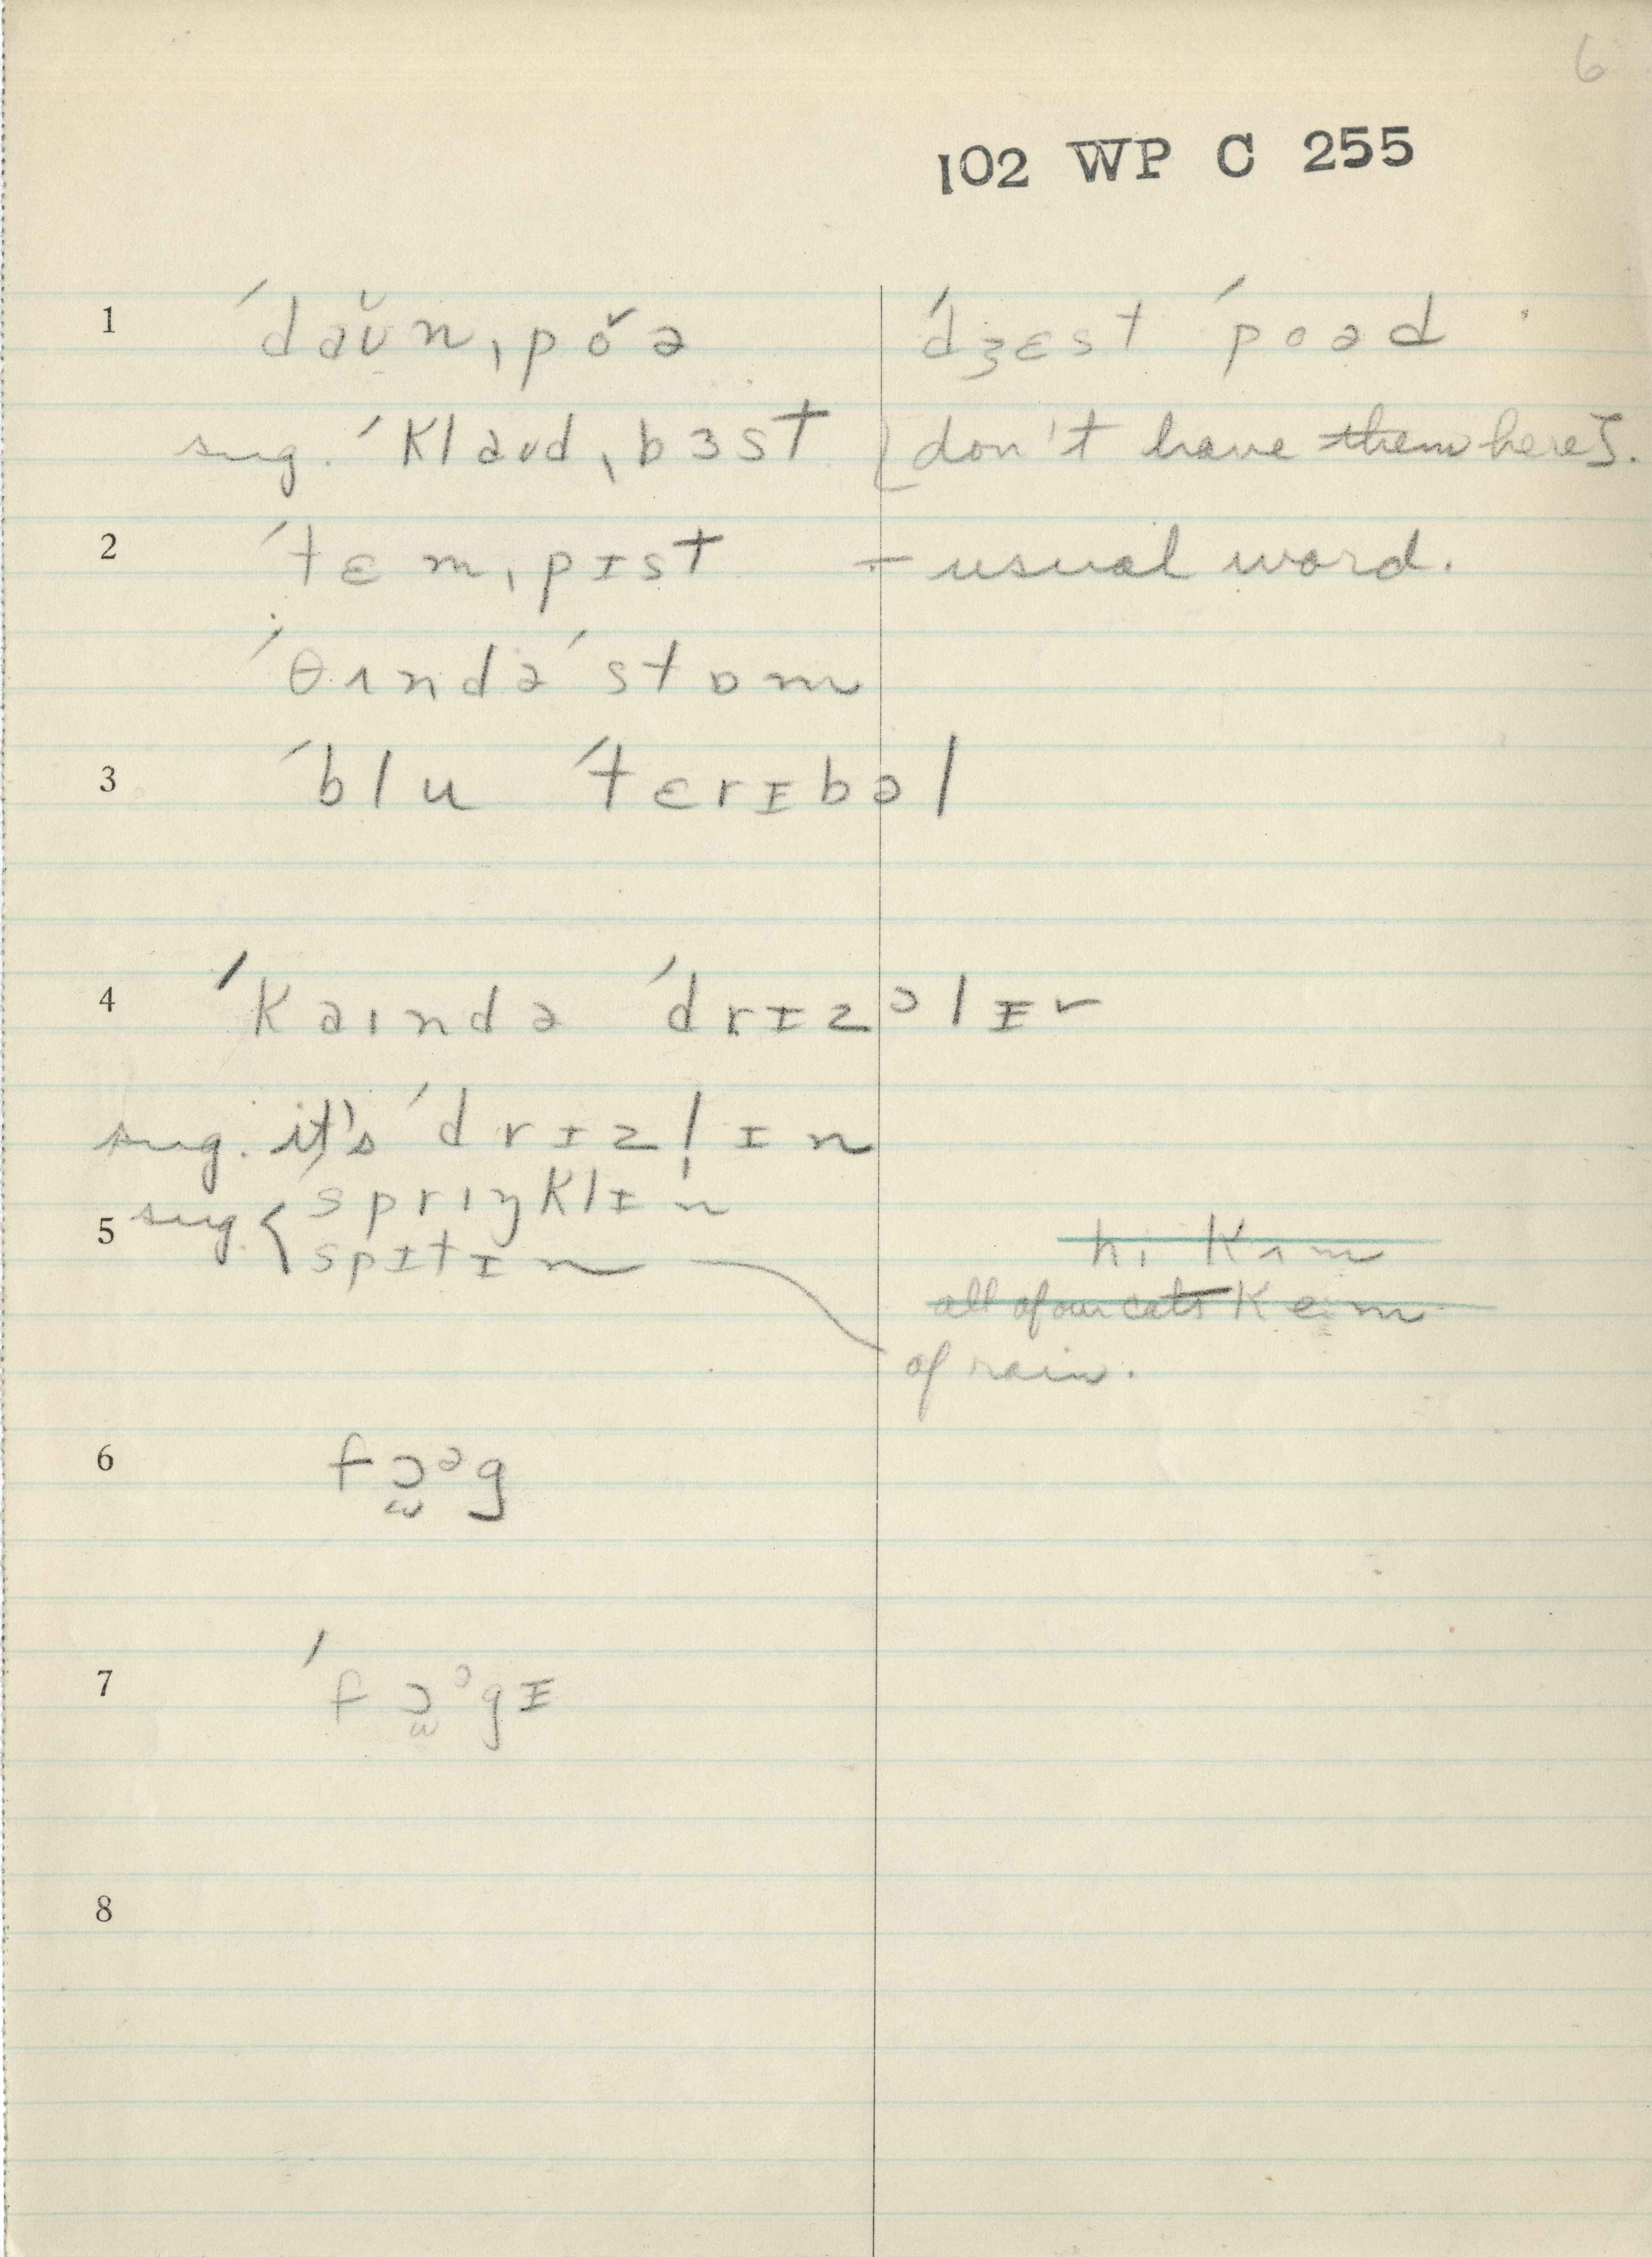 6
102 WP C 255
1 ˈdaʊ̆nˌpŏə ˈdʒɛst ˈpoəd
sug. ˈklaʊdˌbɜst [don't have them here].
2 ˈtɛmˌpɪst - usual word.
ˈθʌndəˈstɒm
3 ˈblu ˈtɛrɪbəl
4 ˈkaɪndə ˈdrɪzᵊlɪr
sug. it's ˈdrɪzl̩ɪn
5 sug. { sprɪŋklɪn
spɪtɪn
hi kʌm
all of our cats keɪm
of rain.
6 fɔ̫ᵊg
7 ˈfɔ̫ᵊgɪ
8